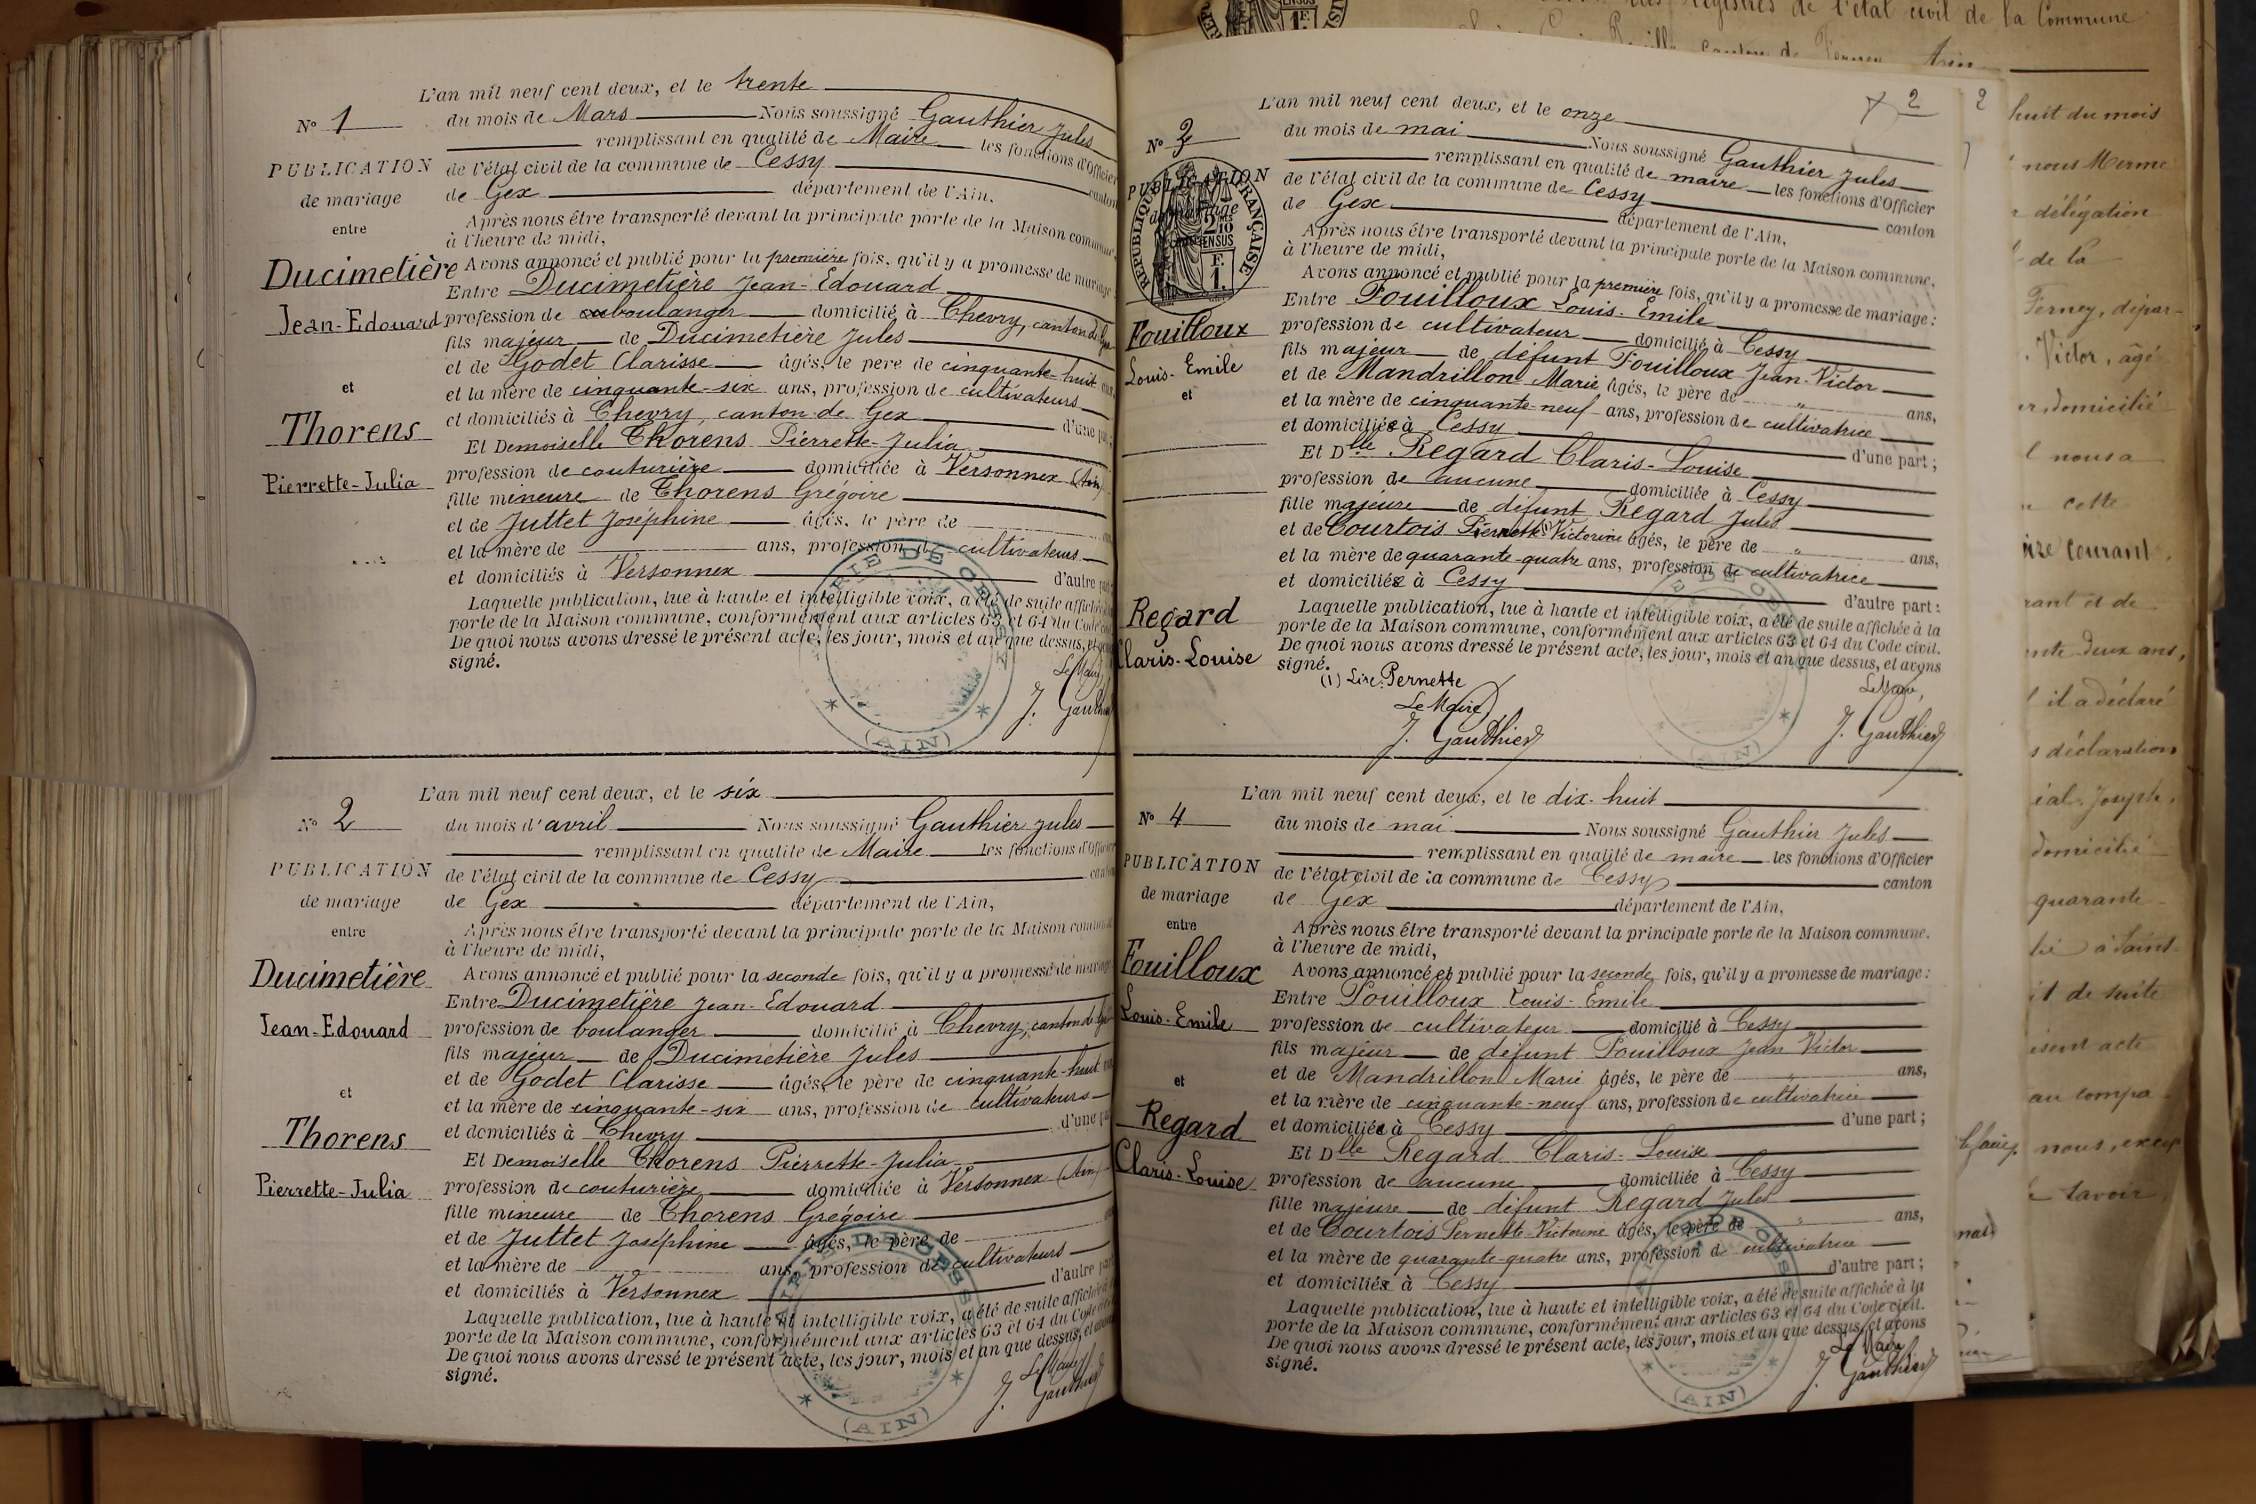 L'an mil neuf cent deux, et le trente
N° 1
du mois de Mars Nous soussigné Gauthier Jules
remplissant en qualité de Maire les fonctions d'Officier
PUBLICATION
de mariage
entre
de l'état civil de la commune de Cessy canton
de Gex département de l'Ain,
Après nous être transporté devant la principale porte de la Maison commune,
à l'heure de midi,
Avons annoncé et publié pour la première fois, qu'il y a promesse de mariage
Ducimetière
Jean-Edouard
et
Thorens
Pierrette-Julia
Entre Ducimetière Jean-Edouard
profession de boulanger domicilié à Chevry, canton de Gex
fils majeur de Ducimetière Jules
et de Godet Clarisse âgés, le père de cinquante-huit ans,
et la mère de cinquante-six ans, profession de cultivateurs
et domiciliés à Chevry, canton de Gex d'une part;
Et Demoiselle Thorens Pierrette-Julia
profession de couturière domiciliée à Versonnex (Ain)
fille mineure de Thorens Grégoire
et de Juttet Joséphine âgés, le père de
et la mère de ans, profession de cultivateurs
et domiciliés à Versonnex d'autre part
Laquelle publication, lue à haute et intelligible voix, a été de suite affichée à la
porte de la Maison commune, conformément aux articles 63 et 64 du Code civil.
De quoi nous avons dressé le présent acte, les jour, mois et an que dessus, et avons
signé.
Le Maire,
J. Gauthier
MAIRIE DE CESSY
(AIN)
L'an mil neuf cent deux, et le six
N° 2
du mois d'avril Nous soussigné Gauthier Jules
remplissant en qualité de Maire les fonctions d'Officier
PUBLICATION
de mariage
entre
de l'état civil de la commune de Cessy canton
de Gex département de l'Ain,
Après nous être transporté devant la principale porte de la Maison commune
à l'heure de midi,
Avons annoncé et publié pour la seconde fois, qu'il y a promesse de mariage
Ducimetière
Jean-Edouard
et
Thorens
Pierrette-Julia
Entre Ducimetière Jean-Edouard
profession de boulanger domicilié à Chevry, canton de Gex
fils majeur de Ducimetière Jules
et de Godet Clarisse âgés, le père de cinquante-huit ans
et la mère de cinquante-six ans, profession de cultivateurs
et domiciliés à Chevry d'une part
Et Demoiselle Thorens Pierrette-Julia
profession de couturière domiciliée à Versonnex (Ain)
fille mineure de Thorens Grégoire
et de Juttet Joséphine âgés, le père de
et la mère de ans, profession de cultivateurs
et domiciliés à Versonnex d'autre part
Laquelle publication, lue à haute et intelligible voix, a été de suite affichée à la
porte de la Maison commune, conformément aux articles 63 et 64 du Code civil
De quoi nous avons dressé le présent acte, les jour, mois et an que dessus, et avons
signé.
Le Maire
J. Gauthier
MAIRIE DE CESSY
(AIN)
2
L'an mil neuf cent deux, et le onze
N° 3
du mois de mai Nous soussigné Gauthier Jules
remplissant en qualité de maire les fonctions d'Officier
PUBLICATION
de mariage
RÉPUBLIQUE FRANÇAISE
2/10 EN SUS
F. 1.
de l'état civil de la commune de Cessy canton
de Gex département de l'Ain,
Après nous être transporté devant la principale porte de la Maison commune,
à l'heure de midi,
Avons annoncé et publié pour la première fois, qu'il y a promesse de mariage:
Fouilloux
Louis-Emile
et
Regard
Claris-Louise
Entre Fouilloux Louis-Emile
profession de cultivateur domicilié à Cessy
fils majeur de défunt Fouilloux Jean-Victor
et de Mandrillon Marie âgés, le père de " ans,
et la mère de cinquante-neuf ans, profession de cultivatrice
et domiciliée à Cessy d'une part;
Et Dlle Regard Claris-Louise
profession de aucune domiciliée à Cessy
fille majeure de défunt Regard Jules
et de Courtois Pierrette (1) Victorine âgés, le père de " ans,
et la mère de quarante-quatre ans, profession de cultivatrice
et domiciliée à Cessy d'autre part:
Laquelle publication, lue à haute et intelligible voix, a été de suite affichée à la
porte de la Maison commune, conformément aux articles 63 et 64 du Code civil.
De quoi nous avons dressé le présent acte, les jour, mois et an que dessus, et avons
signé.
(1) Lire: Pernette
Le Maire
J. Gauthier
Le Maire,
J. Gauthier
L'an mil neuf cent deux, et le dix-huit
N° 4
du mois de mai Nous soussigné Gauthier Jules
remplissant en qualité de maire les fonctions d'Officier
PUBLICATION
de mariage
entre
de l'état civil de la commune de Cessy canton
de Gex département de l'Ain,
Après nous être transporté devant la principale porte de la Maison commune.
à l'heure de midi,
Avons annoncé et publié pour la seconde fois, qu'il y a promesse de mariage:
Fouilloux
Louis-Emile
et
Regard
Claris-Louise
Entre Fouilloux Louis-Emile
profession de cultivateur domicilié à Cessy
fils majeur de défunt Fouilloux Jean Victor
et de Mandrillon Marie âgés, le père de " ans,
et la mère de cinquante-neuf ans, profession de cultivatrice
et domiciliée à Cessy d'une part;
Et Dlle Regard Claris-Louise
profession de aucune domiciliée à Cessy
fille majeure de défunt Regard Jules
et de Courtois Pernette-Victorine âgés, le père de " ans,
et la mère de quarante-quatre ans, profession de cultivatrice
et domiciliée à Cessy d'autre part;
Laquelle publication, lue à haute et intelligible voix, a été de suite affichée à la
porte de la Maison commune, conformément aux articles 63 et 64 du Code civil.
De quoi nous avons dressé le présent acte, les jour, mois et an que dessus, et avons
signé.
Le Maire
J. Gauthier
(AIN)
registres de l'état civil de la Commune
canton de Ferney Ain
2
huit du mois
nous Merme
délégation
de la
Ferney, dépar-
Victor, âgé
domicilié
nous a
cette
courant.
rant et de
deux ans,
il a déclaré
déclaration
Joseph,
domicilié
quarante
à Saint-
it de suite
acte
au compa
nous,
savoir